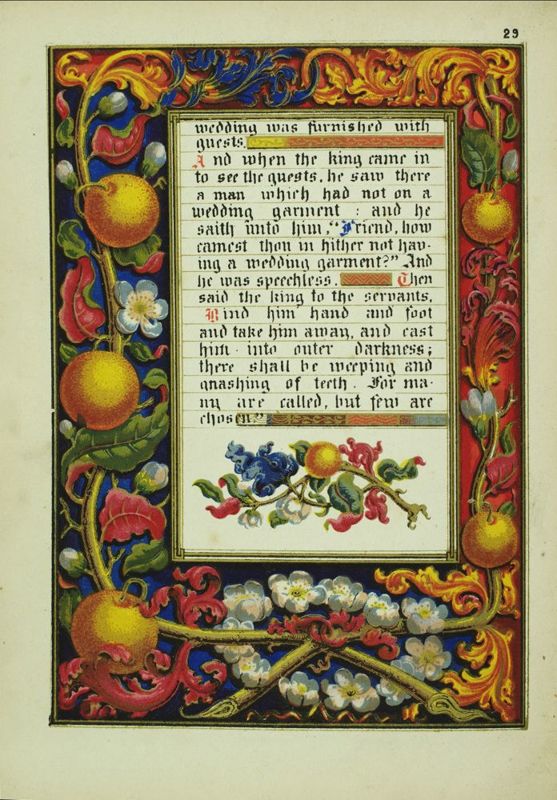 29
wedding was furnished with
guests.
And when the king came in
to see the guests, he saw there
a man which had not on a
wedding garment : and he
saith unto him, “Friend, how
camest thou in hither not hav-
ing a wedding garment?” And
he was speechless. Then
said the king to the servants,
Bind him hand and foot
and take him away, and cast
him into outer darkness;
there shall be weeping and
gnashing of teeth. For ma-
ny are called, but few are
chosen.”